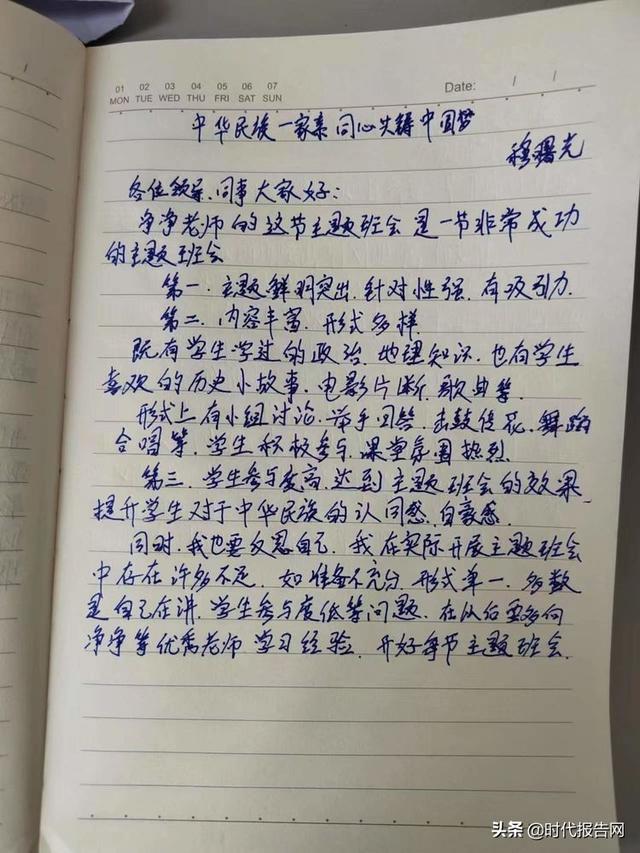 01 02 03 04 05 06 07
MON TUE WED THU FRI SAT SUN
Date: / /
中华民族一家亲 同心共铸中国梦
穆曙光
各位领导、同事大家好：
净净老师的这节主题班会是一节非常成功
的主题班会
第一.主题鲜明突出.针对性强.有吸引力.
第二.内容丰富.形式多样.
既有学生学过的政治.地理知识.也有学生
喜欢的历史小故事.电影片断.歌曲等.
形式上有小组讨论.举手回答.击鼓传花.舞蹈
合唱等.学生积极参与.课堂氛围热烈.
第三.学生参与度高.达到主题班会的效果.
提升学生对于中华民族的认同感.自豪感.
同时.我也要反思自己.我在实际开展主题班会
中存在许多不足.如准备不充分.形式单一.多数
是自己在讲.学生参与度低等问题.在以后要多向
净净等优秀老师学习经验.开好每节主题班会.
头条 @时代报告网